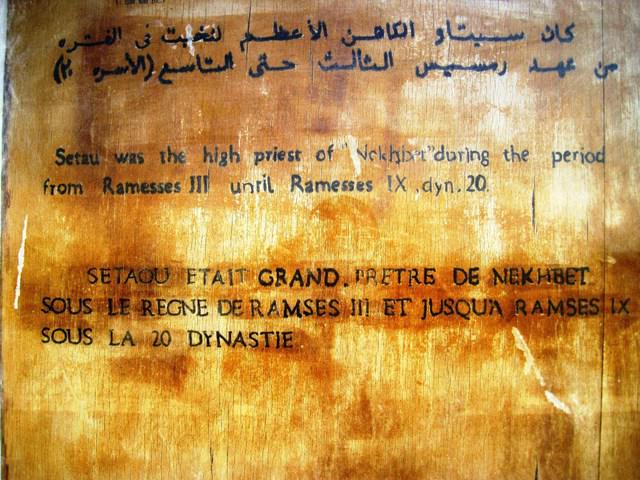 كان سيتاو الكاهن الأعظم لنخبت فى الفتره
من عهد رمسيس الثالث حتى التاسع (الأسره ٢٠)
Setau was the high priest of "Nekhbet" during the period
from Ramesses III until Ramesses IX, dyn. 20.
SETAOU ETAIT GRAND. PRETRE DE NEKHBET
SOUS LE REGNE DE RAMSES III ET JUSQU'A RAMSES IX
SOUS LA 20 DYNASTIE